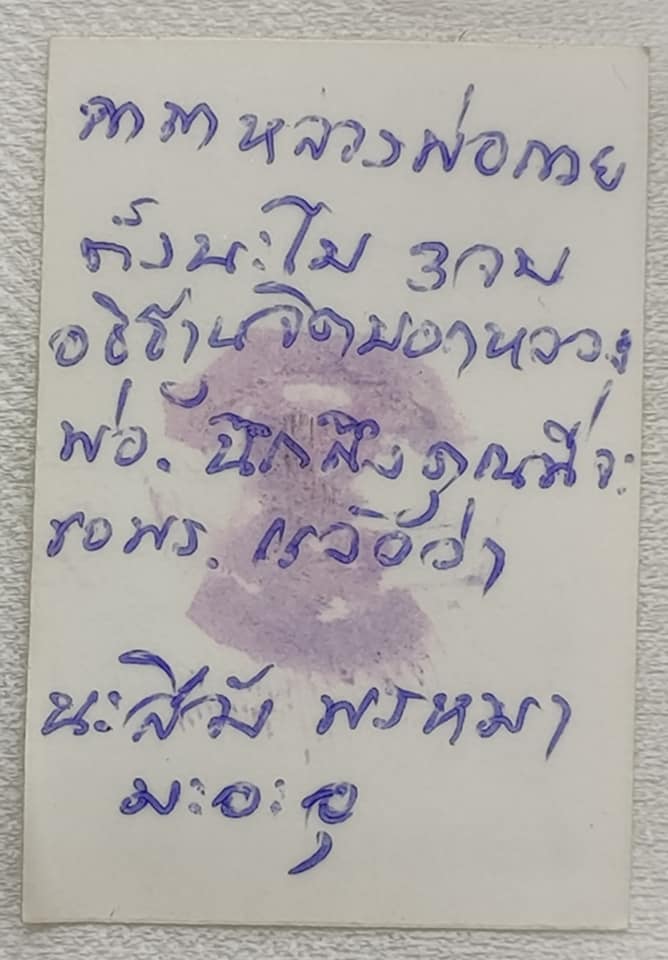 คาถาหลวงพ่อกวย
ตั้งนะโม 3 จบ
อธิฐานจิตบอกหลวง
พ่อ. นึกถึงคุณที่จะ
ขอพร. แล้ว
นะสีมัง พรหมา
มะอะอุ